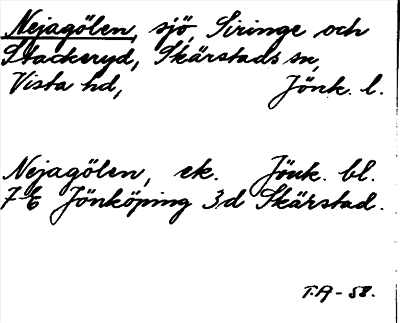 Nejagölen, sjö, Siringe och
Stackeryd, Skärstads sn,
Vista hd, Jönk. l.
Nejagölen, ek. Jönk. bl.
7 E Jönköping 3d Skärstad.
T.A - 58.